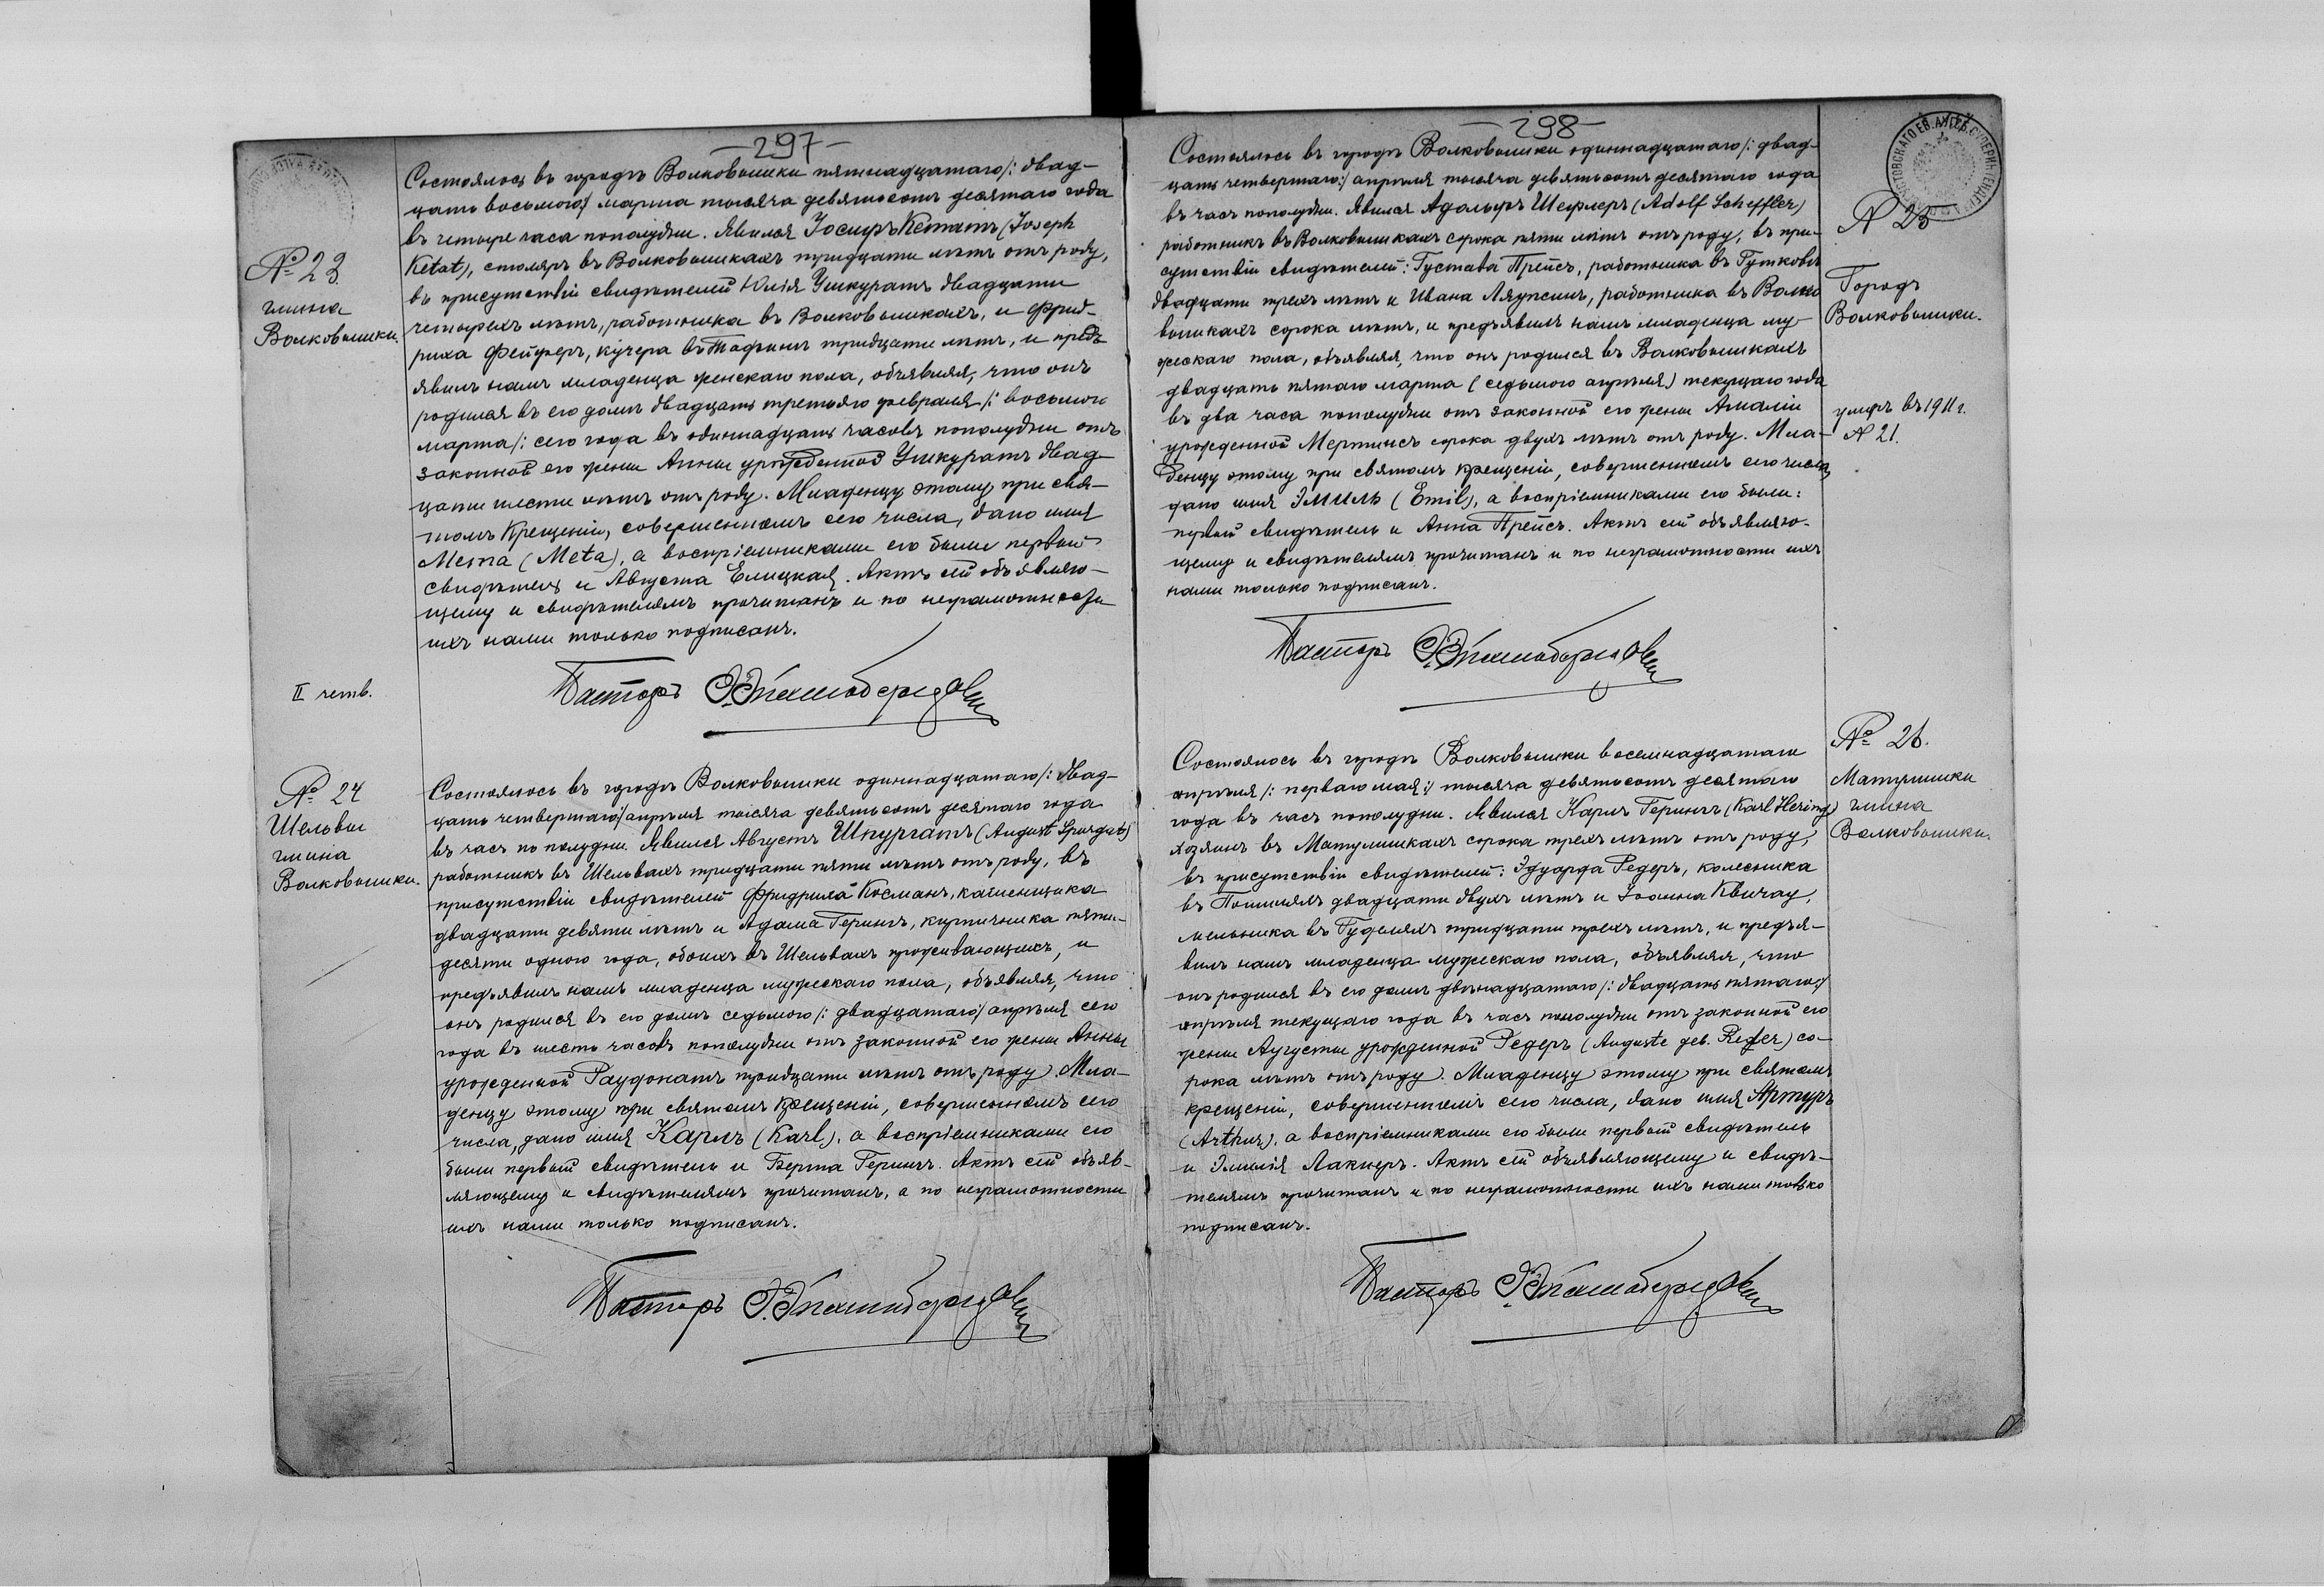 — 297 —
Состоялось въ городѣ Волковышки пятнадцатаго /: двад-
цать восьмого :/ марта тысяча девятьсотъ десятаго года
въ четыре часа пополудни. Явился Іосифъ Кетатъ (Joseph
Ketat), столяръ въ Волковышкахъ тридцати лѣтъ отъ роду,
въ присутствіи свидѣтелей Юлія Ушкуратъ двадцати
четырехъ лѣтъ, работника въ Волковышкахъ, и Фрид-
риха Фейферъ, кучера въ тридцати лѣтъ, и предъ-
явилъ намъ младенца женскаго пола, объявляя, что онъ
родился въ его домѣ двадцать третьяго февраля /: восьмого
марта /: сего года въ одиннадцать часовъ пополудни отъ
законной его жены Анны урожденной Ушкуратъ двад-
цати шести лѣтъ отъ роду. Младенцу этому при свя-
томъ Крещеніи, совершенномъ сего числа, дано имя
Мета (Meta), а воспріемниками его были первый
свидѣтель и Августа Елицкая. Актъ сей объявляю-
щему и свидѣтелямъ прочитанъ и по неграмотности
ихъ нами только подписанъ.
Пасторъ
№ 23.
гмина
Волковышки.
II четв.
№ 24
Шельвы
гмина
Волковышки.
Состоялось въ городѣ Волковышки одиннадцатаго /: двад-
цать четвертаго :/ апрѣля тысяча девятьсотъ десятаго года
въ часъ по полудни. Явился Августъ Шпургатъ (August Spurgat)
работникъ въ Шельвахъ тридцати пяти лѣтъ отъ роду, въ
присутствіи свидѣтелей Фридриха Косманъ, каменщика
двадцати девяти лѣтъ и Адама Герингъ, кирпичника пяти-
десяти одного года, обоихъ въ Шельвахъ проживающихъ, и
предъявилъ намъ младенца мужескаго пола, объявляя, что
онъ родился въ его домѣ седьмого /: двадцатаго :/ апрѣля сего
года въ шесть часовъ пополудни отъ законной его жены Анны
урожденной Раудонатъ тридцати лѣтъ отъ роду. Мла-
денцу этому при святомъ крещеніи, совершенномъ сего
числа, дано имя Карлъ (Karl), а воспріемниками его
были первый свидѣтель и Берта Герингъ. Актъ сей объяв-
ляющему и свидѣтелямъ прочитанъ, а по неграмотности
ихъ нами только подписанъ.
Пасторъ
— 298 —
Состоялось въ городѣ Волковышки одиннадцатаго /: двад-
цать четвертаго :/ апрѣля тысяча девятьсотъ десятаго года
въ часъ пополудни. Явился Адольфъ Шефлеръ (Adolf Scheffler)
работникъ въ Волковышкахъ сорока пяти лѣтъ отъ роду, въ при-
сутствіи свидѣтелей: Густава Прейсъ, работника въ Гутковѣ
двадцати трехъ лѣтъ и Ивана работника въ Волко
вышкахъ сорока лѣтъ, и предъявилъ намъ младенца му-
жескаго пола, объявляя, что онъ родился въ Волковышкахъ
двадцать пятаго марта (седьмого апрѣля) текущаго года
въ два часа пополудни отъ законной его жены Амаліи
урожденной Мертинсъ сорока двухъ лѣтъ отъ роду. Мла-
денцу этому при святомъ крещеніи, совершенномъ сего числа,
дано имя Эмиль (Emil), а воспріемниками его были:
первый свидѣтель и Анна Прейсъ. Актъ сей объявляю-
щему и свидѣтелямъ прочитанъ и по неграмотности ихъ
нами только подписанъ.
Пасторъ
№ 25
Городъ
Волковышки.
умеръ въ 1911 г.
№ 21.
Состоялось въ городѣ Волковышки восемнадцатаго
апрѣля /: перваго мая :/ тысяча девятьсотъ десятаго
года въ часъ пополудни. Явился Карлъ Герингъ (Karl Hering)
хозяинъ въ Матулишкахъ сорока трехъ лѣтъ отъ роду,
въ присутствіи свидѣтелей: Эдуарда Редеръ, колесника
въ двадцати двухъ лѣтъ и Іоанна Квичау,
мельника въ Гуделяхъ тридцати трехъ лѣтъ, и предъя-
вилъ намъ младенца мужескаго пола, объявляя, что
онъ родился въ его домѣ двѣнадцатаго /: двадцать пятаго :/
апрѣля текущаго года въ часъ пополудни отъ законной его
жены Аугусты урожденной Редеръ (Auguste geb. Reder) со-
рока лѣтъ отъ роду. Младенцу этому при святомъ
крещеніи, совершенномъ сего числа, дано имя Артуръ
(Arthur), а воспріемниками его были первый свидѣтель
и Эмилія Лакнеръ. Актъ сей объявляющему и свидѣ-
телямъ прочитанъ и по неграмотности ихъ нами только
подписанъ.
Пасторъ
№ 26.
Матулишки
гмина
Волковышки.